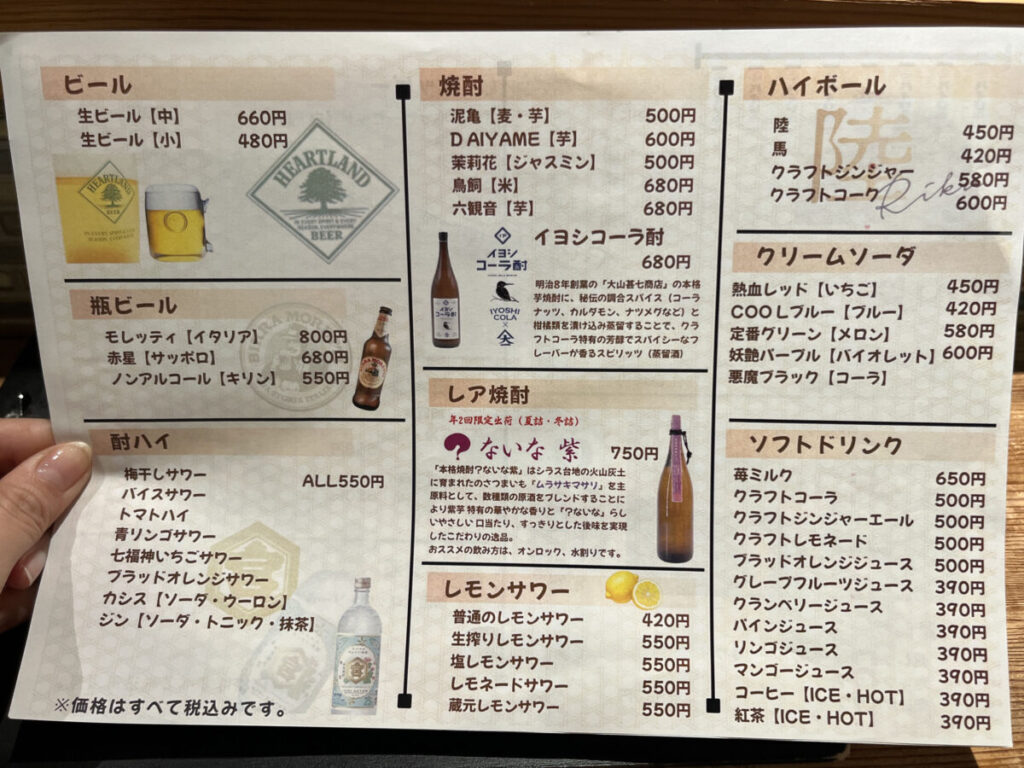 ビール
生ビール【中】 660円
生ビール【小】 480円
HEARTLAND
BEER
HEARTLAND
BEER
瓶ビール
モレッティ【イタリア】 800円
赤星【サッポロ】 680円
ノンアルコール【キリン】 550円
酎ハイ
梅干しサワー ALL550円
バイスサワー
トマトハイ
青リンゴサワー
七福神いちごサワー
ブラッドオレンジサワー
カシス【ソーダ・ウーロン】
ジン【ソーダ・トニック・抹茶】
※価格はすべて税込みです。
焼酎
泥亀【麦・芋】 500円
DAIYAME【芋】 600円
茉莉花【ジャスミン】 500円
鳥飼【米】 680円
六観音【芋】 680円
イヨシ
コーラ酎
IYOSHI
COLA
×
イヨシコーラ酎
680円
明治8年創業の「大山甚七商店」の本格
芋焼酎に、秘伝の調合スパイス（コーラ
ナッツ、カルダモン、ナツメグなど）と
柑橘類を漬け込み蒸留することで、クラ
フトコーラ特有の芳醇でスパイシーなフ
レーバーが香るスピリッツ（蒸留酒）
レア焼酎
年2回限定出荷（夏詰・冬詰）
？ないな 紫 750円
「本格焼酎？ないな紫」はシラス台地の火山灰土
に育まれたのさつまいも『ムラサキマサリ』を主
原料として、数種類の原酒をブレンドすることに
より紫芋 特有の華やかな香りと『？ないな』らし
いやさしい 口当たり、すっきりとした後味を実現
したこだわりの逸品。
おススメの飲み方は、オンロック、水割りです。
レモンサワー
普通のレモンサワー 420円
生搾りレモンサワー 550円
塩レモンサワー 550円
レモネードサワー 550円
蔵元レモンサワー 550円
ハイボール
陸 450円
馬 420円
クラフトジンジャー 580円
クラフトコーク 600円
陸
Riku
クリームソーダ
熱血レッド【いちご】 450円
COOLブルー【ブルー】 420円
定番グリーン【メロン】 580円
妖艶パープル【バイオレット】 600円
悪魔ブラック【コーラ】
ソフトドリンク
苺ミルク 650円
クラフトコーラ 500円
クラフトジンジャーエール 500円
クラフトレモネード 500円
ブラッドオレンジジュース 500円
グレープフルーツジュース 390円
クランベリージュース 390円
パインジュース 390円
リンゴジュース 390円
マンゴージュース 390円
コーヒー【ICE・HOT】 390円
紅茶【ICE・HOT】 390円